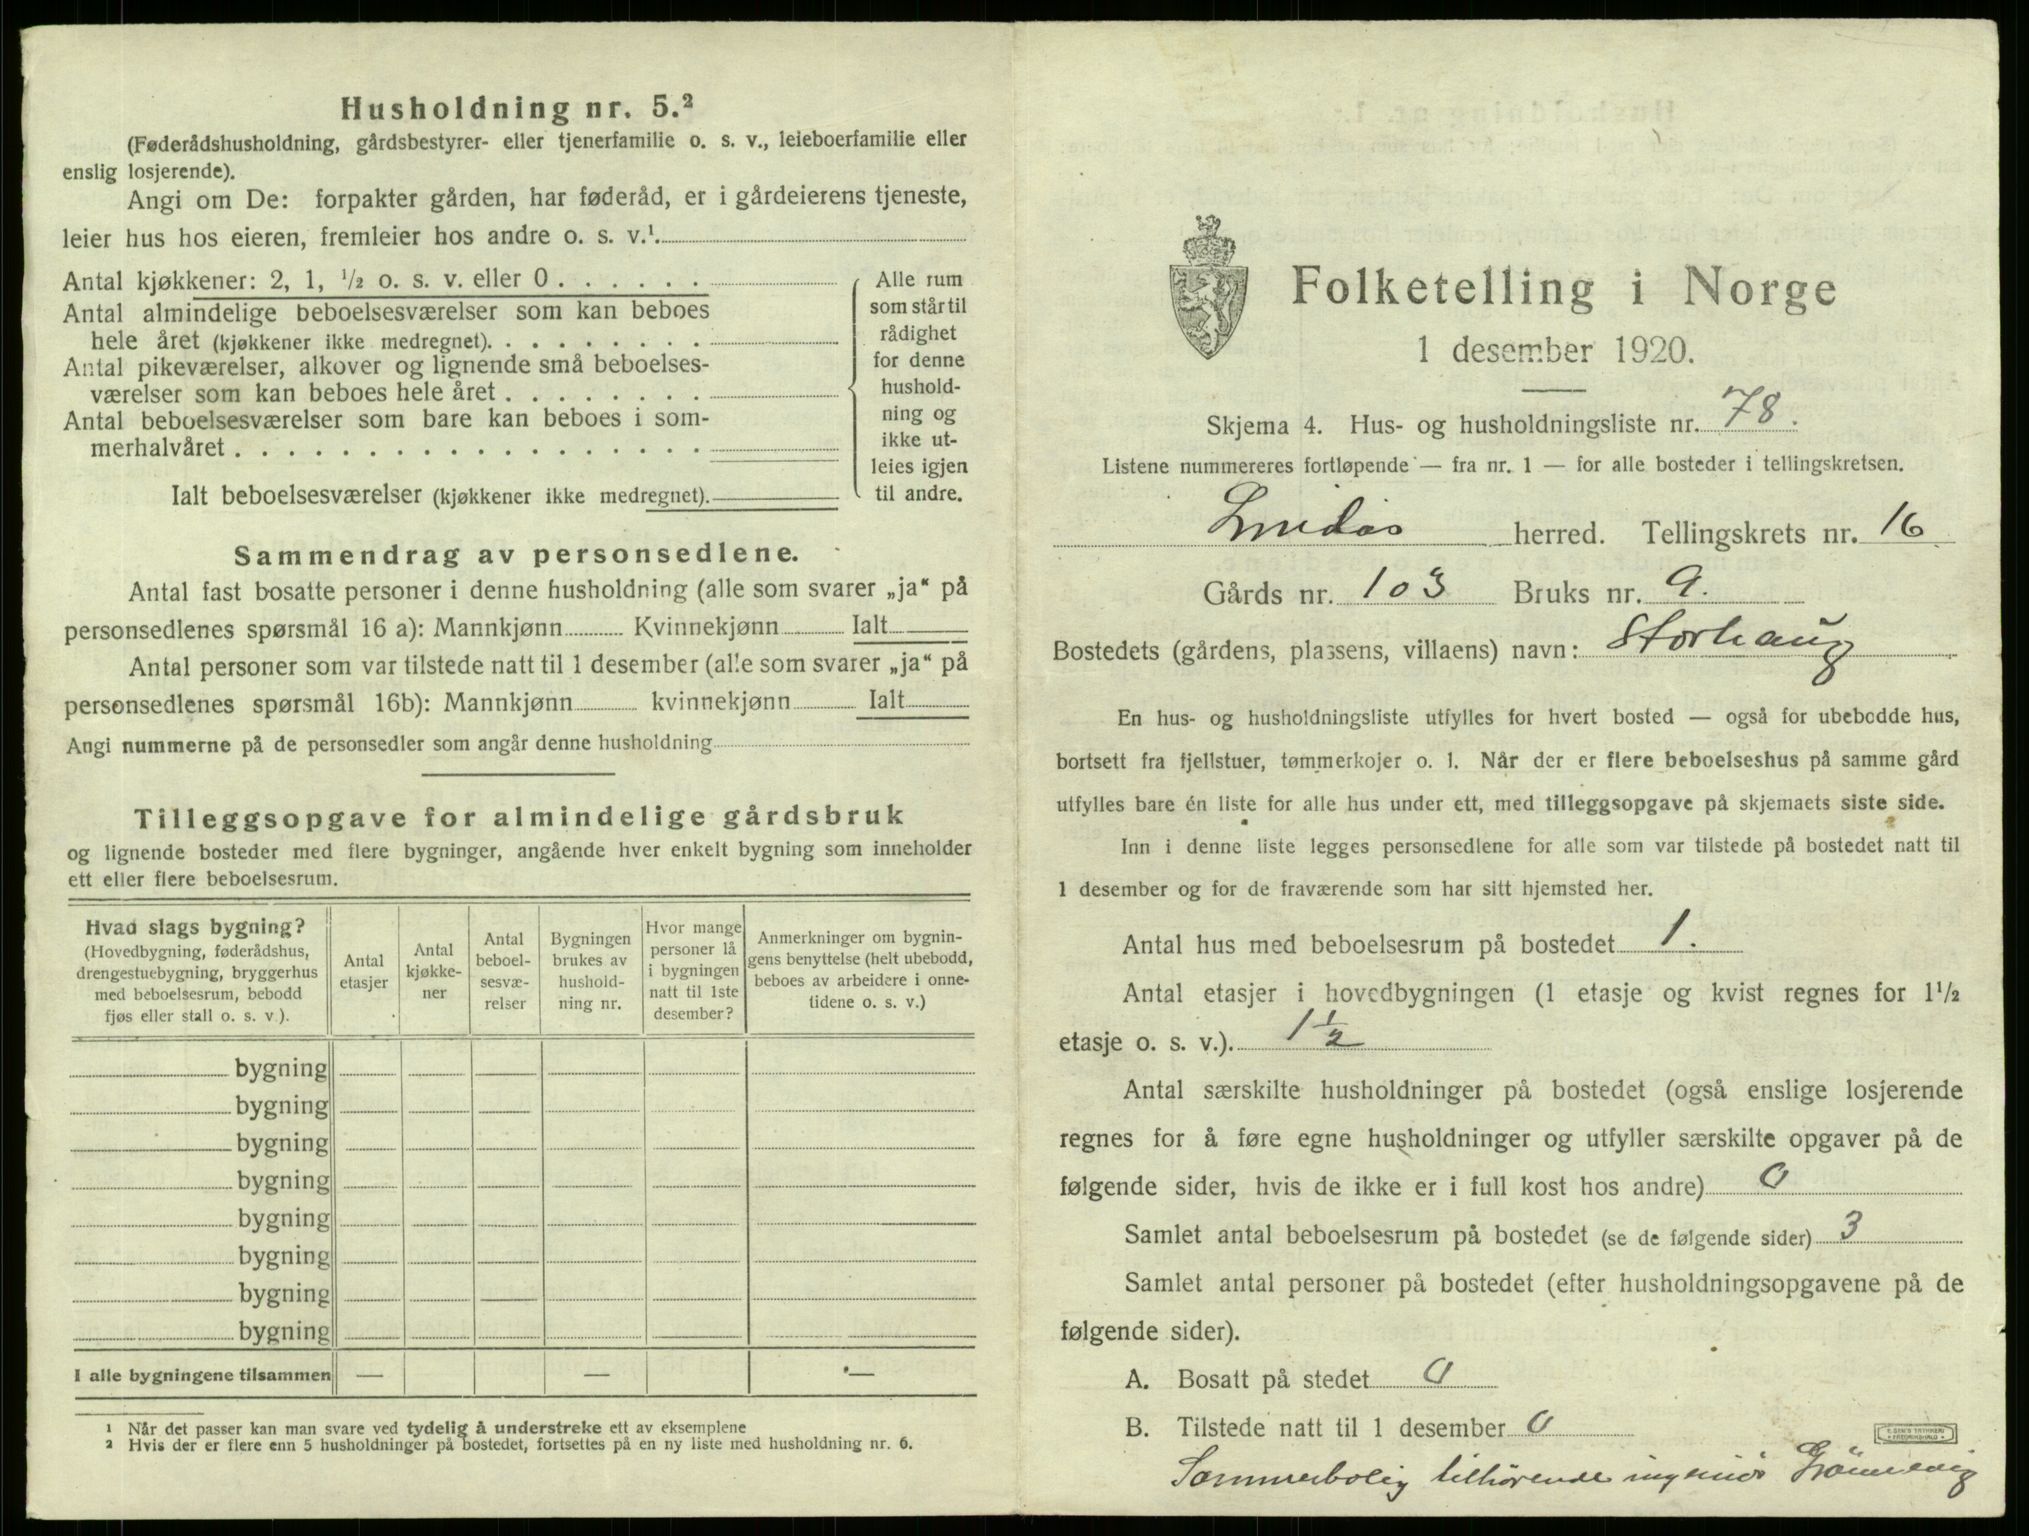 Husholdning nr. 5.²
(Føderådshusholdning, gårdsbestyrer- eller tjenerfamilie o. s. v., leieboerfamilie eller
enslig losjerende).
Angi om De: forpakter gården, har føderåd, er i gårdeierens tjeneste,
leier hus hos eieren, fremleier hos andre o. s. v.¹
Antal kjøkkener: 2, 1, ½ o. s. v. eller 0 . . . . . .
Antal almindelige beboelsesværelser som kan beboes
hele året (kjøkkener ikke medregnet). . . . . . . . .
Antal pikeværelser, alkover og lignende små beboelses-
værelser som kan beboes hele året . . . . . . . .
Antal beboelsesværelser som bare kan beboes i som-
merhalvåret . . . . . . . . . . . . . . . . . .
Ialt beboelsesværelser (kjøkkener ikke medregnet).
Alle rum
som står til
rådighet
for denne
hushold-
ning og
ikke ut-
leies igjen
til andre.
Sammendrag av personsedlene.
Antal fast bosatte personer i denne husholdning (alle som svarer „ja“ på
personsedlenes spørsmål 16 a): Mannkjønn Kvinnekjønn Ialt
Antal personer som var tilstede natt til 1 desember (alle som svarer „ja“ på
personsedlenes spørsmål 16b): Mannkjønn kvinnekjønn Ialt
Angi nummerne på de personsedler som angår denne husholdning
Tilleggsopgave for almindelige gårdsbruk
og lignende bosteder med flere bygninger, angående hver enkelt bygning som inneholder
ett eller flere beboelsesrum.
Hvad slags bygning?
(Hovedbygning, føderådshus,
drengestuebygning, bryggerhus
med beboelsesrum, bebodd
fjøs eller stall o. s. v.).
Antal
etasjer
Antal
kjøkke-
ner
Antal
beboel-
sesvæ-
relser
Bygningen
brukes av
hushold-
ning nr.
Hvor mange
personer lå
i bygningen
natt til 1ste
desember?
Anmerkninger om bygnin-
gens benyttelse (helt ubebodd,
beboes av arbeidere i onne-
tidene o. s. v.)
bygning
bygning
bygning
bygning
bygning
bygning
bygning
bygning
I alle bygningene tilsammen — — —
¹ Når det passer kan man svare ved tydelig å understreke ett av eksemplene
² Hvis der er flere enn 5 husholdninger på bostedet, fortsettes på en ny liste med husholdning nr. 6.
Folketelling i Norge
1 desember 1920.
Skjema 4. Hus- og husholdningsliste nr. 78.
Listene nummereres fortløpende — fra nr. 1 — for alle bosteder i tellingskretsen.
Lindås herred. Tellingskrets nr. 16
Gårds nr. 103 Bruks nr. 9.
Bostedets (gårdens, plassens, villaens) navn: Storhaug
En hus- og husholdningsliste utfylles for hvert bosted — også for ubebodde hus,
bortsett fra fjellstuer, tømmerkojer o. l. Når der er flere beboelseshus på samme gård
utfylles bare én liste for alle hus under ett, med tilleggsopgave på skjemaets siste side.
Inn i denne liste legges personsedlene for alle som var tilstede på bostedet natt til
1 desember og for de fraværende som har sitt hjemsted her.
Antal hus med beboelsesrum på bostedet 1.
Antal etasjer i hovedbygningen (1 etasje og kvist regnes for 1½
etasje o. s. v.). 1½
Antal særskilte husholdninger på bostedet (også enslige losjerende
regnes for å føre egne husholdninger og utfyller særskilte opgaver på de
følgende sider, hvis de ikke er i full kost hos andre) 0
Samlet antal beboelsesrum på bostedet (se de følgende sider) 3
Samlet antal personer på bostedet (efter husholdningsopgavene på de
følgende sider).
A. Bosatt på stedet 0
B. Tilstede natt til 1 desember 0
Sommerbolig tilhørende ingeniør